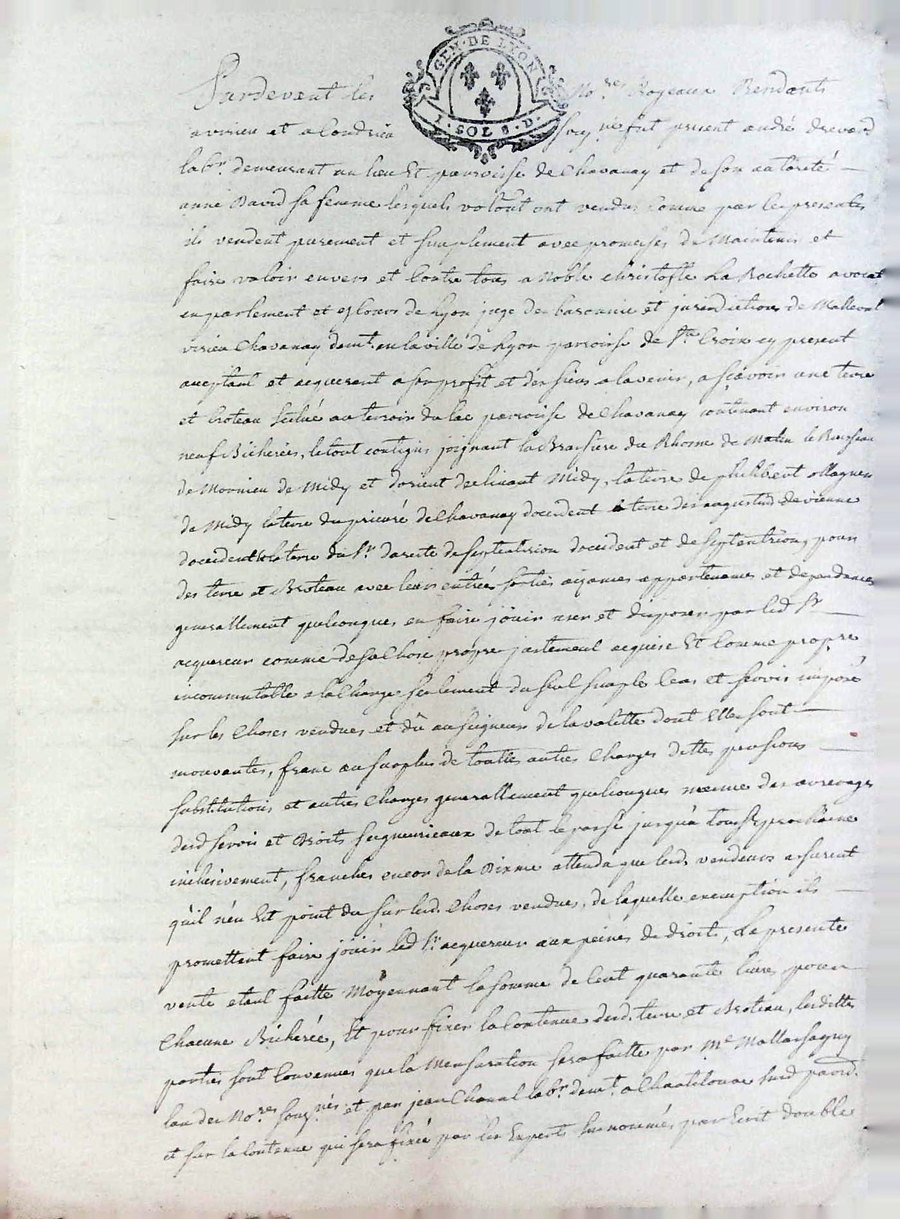 GEN · DE LYON
1 · SOL 8 · D ·
Pardevant les No.res Royeaux Residants
a virieu et a Condrieu souz.nés fut present andré drevard
lab.r demeurant au lieu Et parroisse de Chavanay et de son autoreté
anne David sa femme lesquels vol.t ont vendus comme par les presentes
ils vendent purement et simplement avec promesses de Maintenir et
faire valoir envers et Contre tous a Noble christofle La Rochette avocat
en parlement et es Cours de Lyon juge des baronnie et jurisdictions de Malleval
virieu Chavanay dem.t en la ville de Lyon parroisse de S.te Croix cy present
acceptant et acquerant a son profit et des siens a lavenir, a sçavoir une terre
et broteau scitué au terroir du lac parroisse de Chavanay contenant environ
neuf Bicherées, le tout contigus joignant la Brassiere du Rhosne de Matin le Ruisseau
de Mornieu de Midy et dorient declinant Midy, la terre de philibert
de Midy la terre du prieuré de Chavanay doccident la terre des augustins de vienne
doccident la terre du S.r de Septentrion doccident et de Septentrion, pour
des terre et Broteau avec leurs entrées sorties aizances appartenances et dependances
generallement quelconques en faire jouir user et disposer par led S.r
acquereur comme de sa Chose propre justement acquise Et Comme propre
incommutable a la Charge seulement du seul simple Cens et servis imposé
sur les Choses vendues et dû au seigneur de la valette dont Elles sont
mouvantes, franc au surplus de touttes autres Charges dettes pensions
substitutions et autres Charges generallement quelconques mesme des arrerages
desd servis et Droits seigneuriaux de tout le passé jusqu'à touss.t prochaine
inclusivement, franches encor de la Dixme attendu que lesd vendeurs assurent
qu'il n'en Est point du sur lesd. Choses vendues, de laquelle exemption ils
promettent faire jouir led S.r acquereur aux peines de droits, La presente
vente etant faitte Moyennant la somme de Cent quarante livres pour
Chacune Bicherée, Et pour fixer la Contenue desd. terre et Broteau, lesdittes
parties sont Convenues que la Mensuration sera faitte par M.e
lun des No.res souz.nés et par jean Chanal lab.r dem.t a
et sur la Contenue qui sera fixée par les Experts sus nommés, par Ecrit double